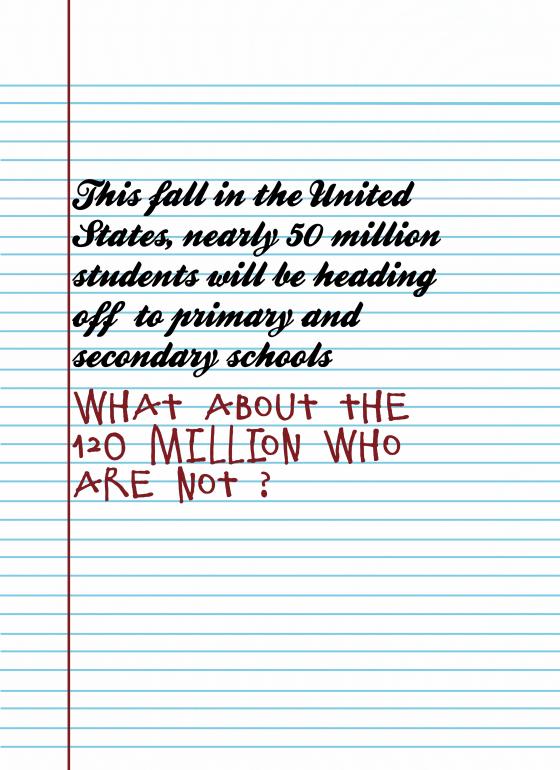 This fall in the United
States, nearly 50 million
students will be heading
off to primary and
secondary schools
WHAt ABOUt tHE
120 MILLION WHO
ARE Not ?